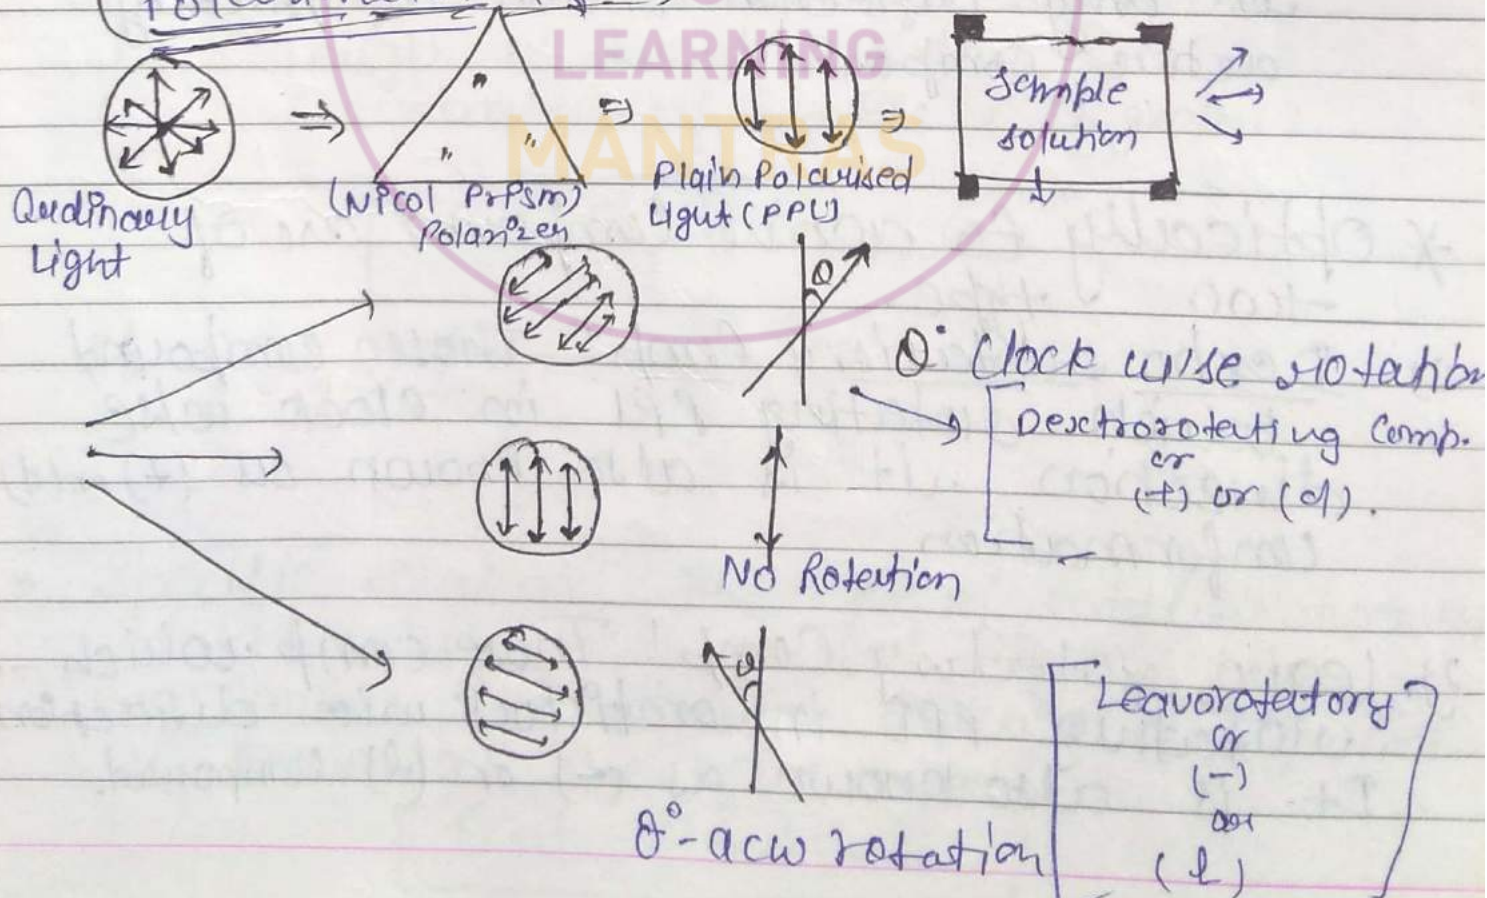 LEARNING
MANTRAS
Ordinary
Light
(Nicol Prism)
Polarizer
Plain Polarised
Light (PPL)
Sample
solution
θ
θ° Clock wise rotation
Dextrorotating Comp.
or
(+) or (d).
No Rotation
θ
θ°-acw rotation
Leavorotatory
or
(-)
or
(l)